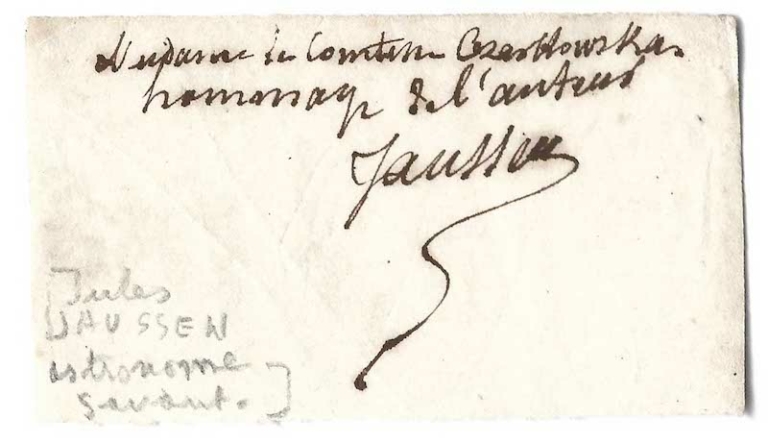 Madame la Comtesse Czarkowska
hommage de l'auteur
Janssen
Jules
JAUSSEN
astronome
savant.